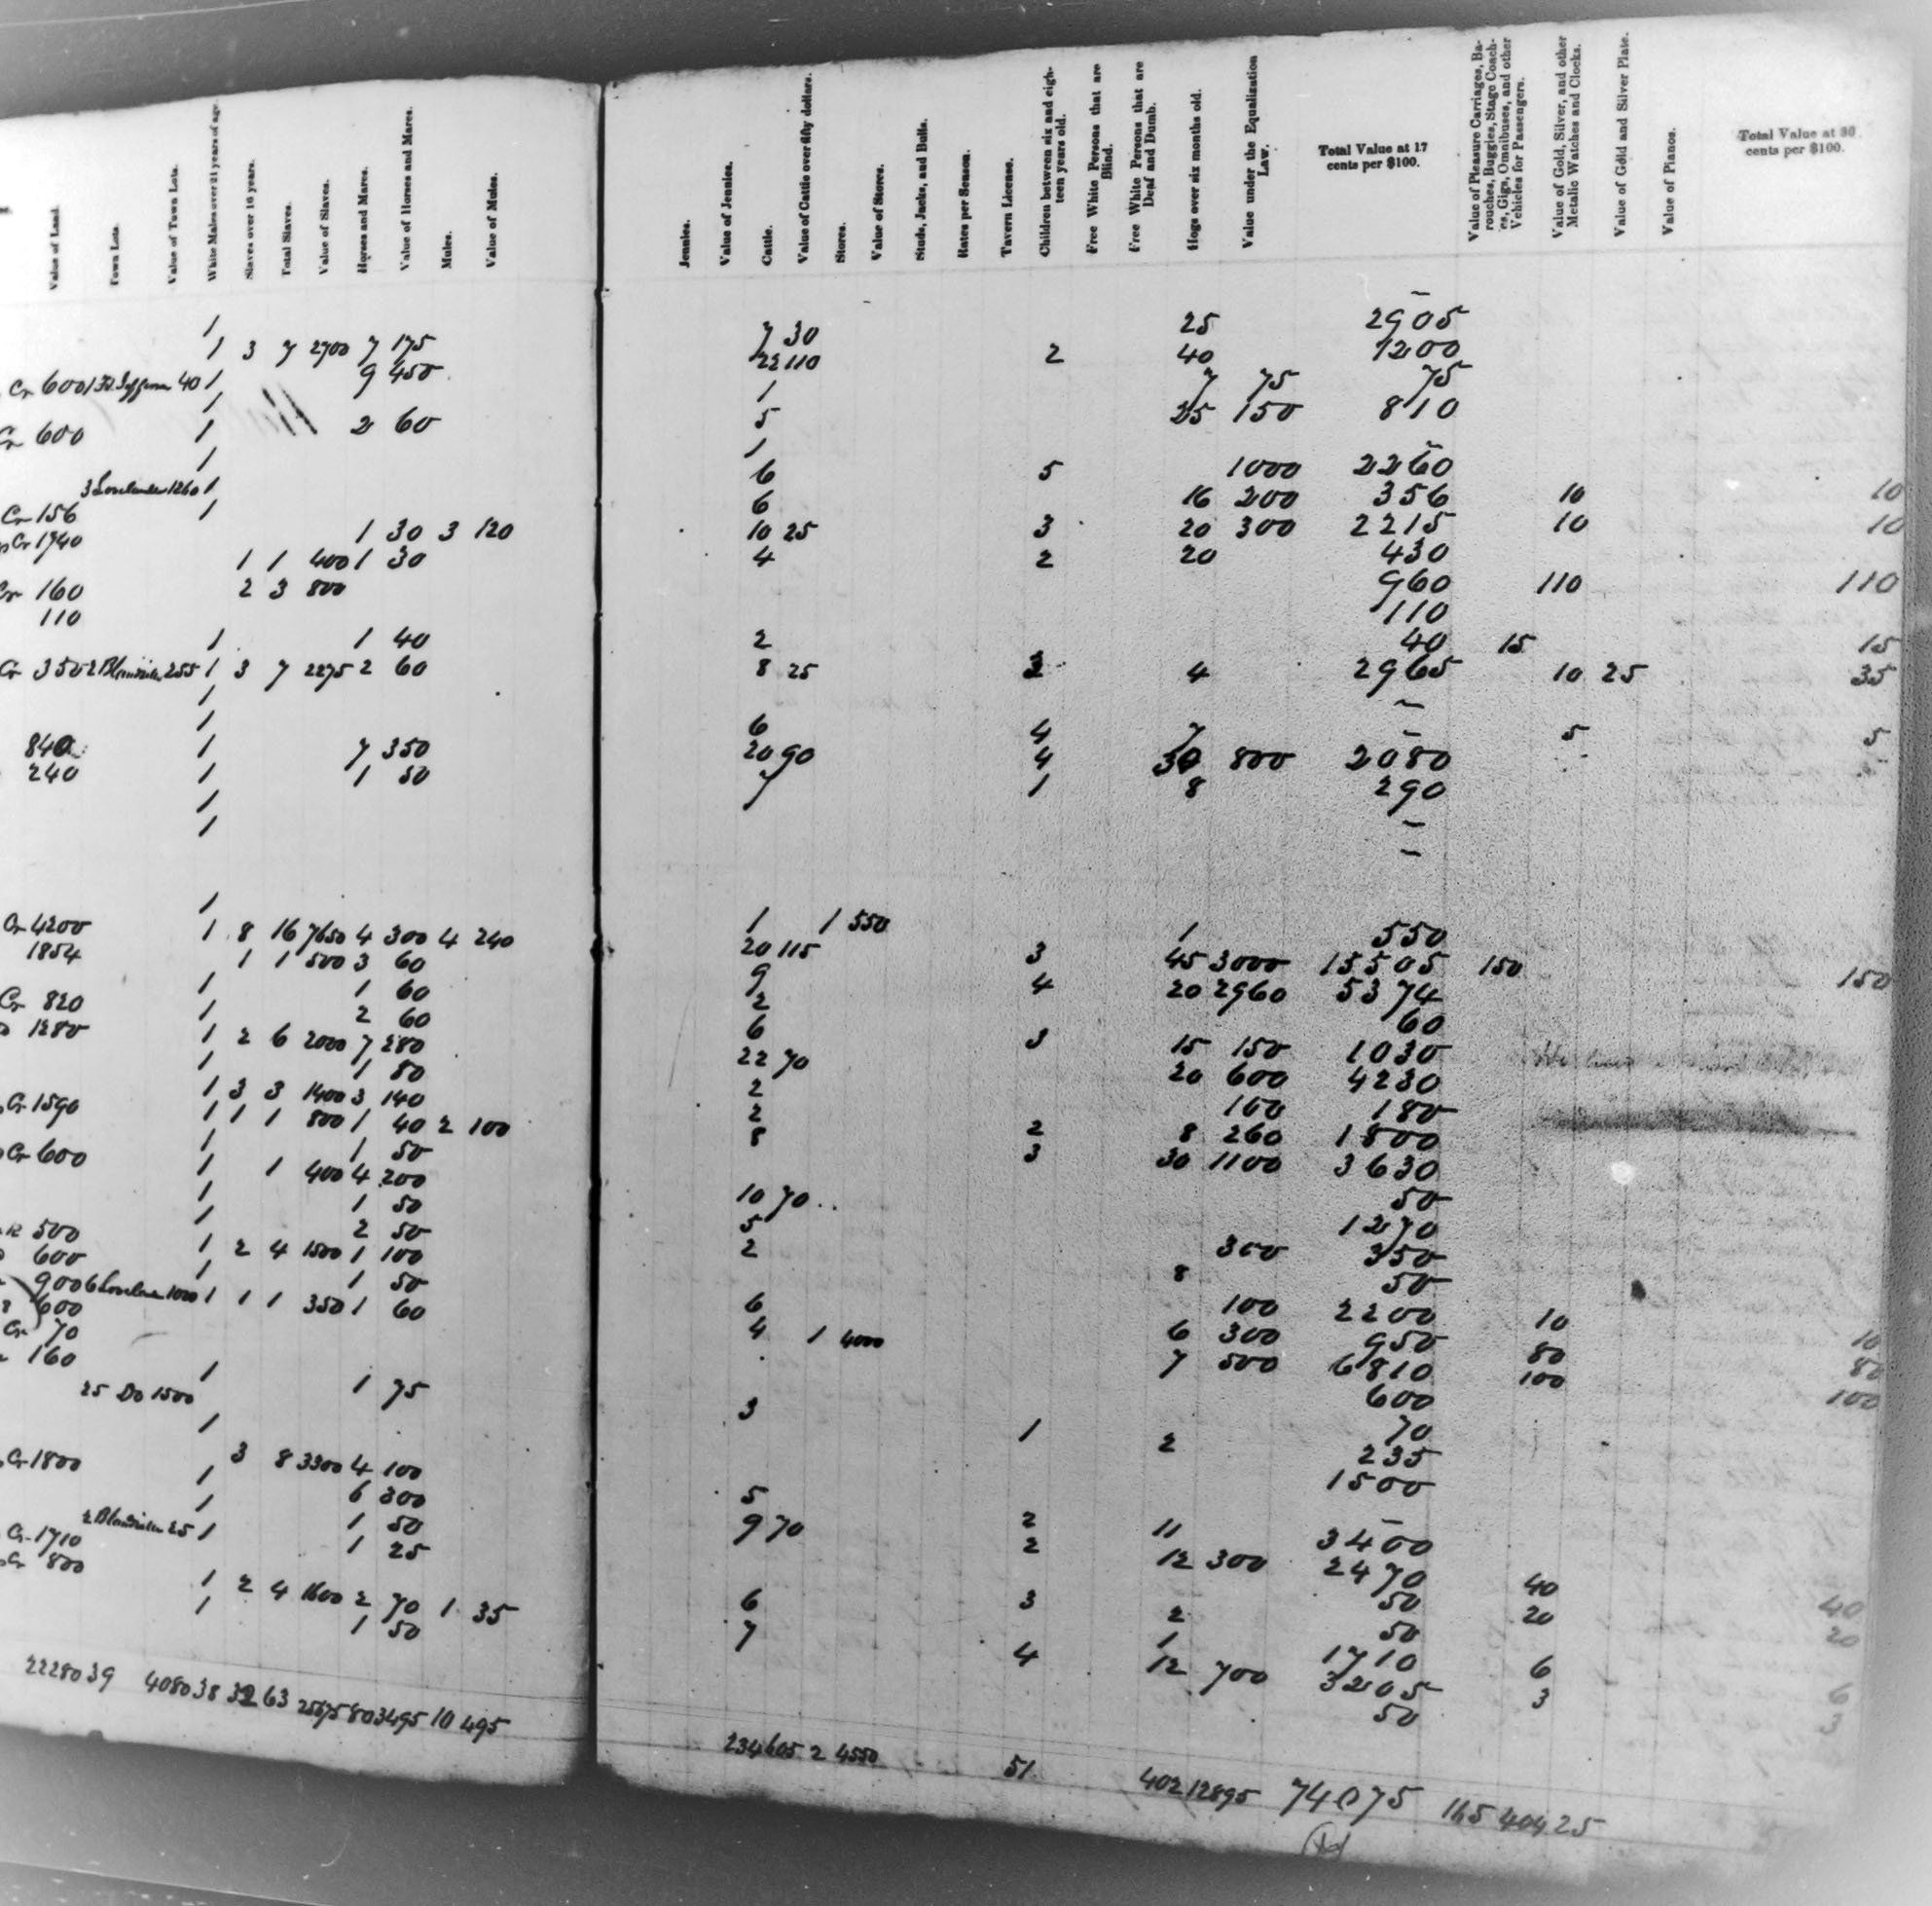 Value of Land.
Town Lots.
Value of Town Lots.
White Males over 21 years of age.
Slaves over 16 years.
Total Slaves.
Value of Slaves.
Horses and Mares.
Value of Horses and Mares.
Mules.
Value of Mules.
Jennies.
Value of Jennies.
Cattle.
Value of Cattle over fifty dollars.
Stores.
Value of Stores.
Studs, Jacks, and Bulls.
Rates per Season.
Tavern License.
Children between six and eighteen years old.
Free White Persons that are Blind.
Free White Persons that are Deaf and Dumb.
Hogs over six months old.
Value under the Equalization Law.
Total Value at 17 cents per $100.
Value of Pleasure Carriages, Barouches, Buggies, Stage Coaches, Gigs, Omnibuses, and other Vehicles for Passengers.
Value of Gold, Silver, and other Metallic Watches and Clocks.
Value of Gold and Silver Plate.
Value of Pianos.
Total Value at 30 cents per $100.
1
1 3 7 2700 7 175
9 450
Cr 600 40 1
1
Cr 600 1 2 60
1
3 1260 1
Cr 156 1
Cr 1740 1 30 3 120
1 1 400 1 30
Cr 160 2 3 800
110
1 1 40
Cr 350 2 255 1 3 7 2275 2 60
1
1
840 1 7 350
240 1 1 50
1
1
1
Cr 4200 1 8 16 7650 4 300 4 240
1854 1 1 500 3 60
1 1 60
Cr 820 1 2 60
1280 1 2 6 2000 7 280
1 1 80
1 3 3 1400 3 140
Cr 1590 1 1 1 800 1 40 2 100
1 1 50
Cr 600 1 1 400 4 200
1 1 50
500 1 2 50
600 1 2 4 1500 1 100
1 1 50
900 6 1000 1 1 1 350 1 60
600
Cr 70
160
1 1 75
25 Do 1500
1
Cr 1800 3 8 3300 4 100
1 6 300
1 1 50
2 25 1 1 25
Cr 1710
Cr 800
1 2 4 1600 2 70 1 35
1 1 50
22280 39 4080 38 32 63 25675 80 3495 10 495
7 30 25 2905
22 110 2 40 1200
1 7 75 75
5 25 150 810
1
6 5 1000 2260
6 16 200 356 10 10
10 25 3 20 300 2215 10 10
4 2 20 430
960 110 110
110
2 40 15 15
8 25 4 2965 10 25 35
6 4 7 5 5
20 90 4 30 800 2080
7 1 8 290
1 1 550 1 550
20 115 3 45 3000 15505 150 150
9 4 20 2960 5374
2 60
6 3 15 150 1030
22 70 20 600 4230
2 100 180
2 2 8 260 1800
8 3 30 1100 3630
50
10 70 1270
5 300 350
2 8 50
100 2200 10 10
6 6 300 950 80 80
4 1 4000 7 500 6810 100 100
600
3 70
1 2 235
1500
5 2 11 3400
9 70 2 12 300 2470 40 40
50 20 20
6 3 2 50
7 1 1710 6 6
4 12 700 3205 3 3
50
234 605 2 4550 51 402 12895 74075 165 404 25